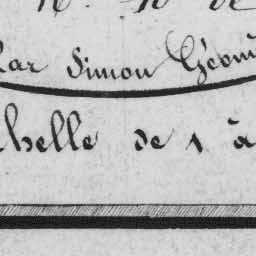 Par Simon Géom
helle de 1 à